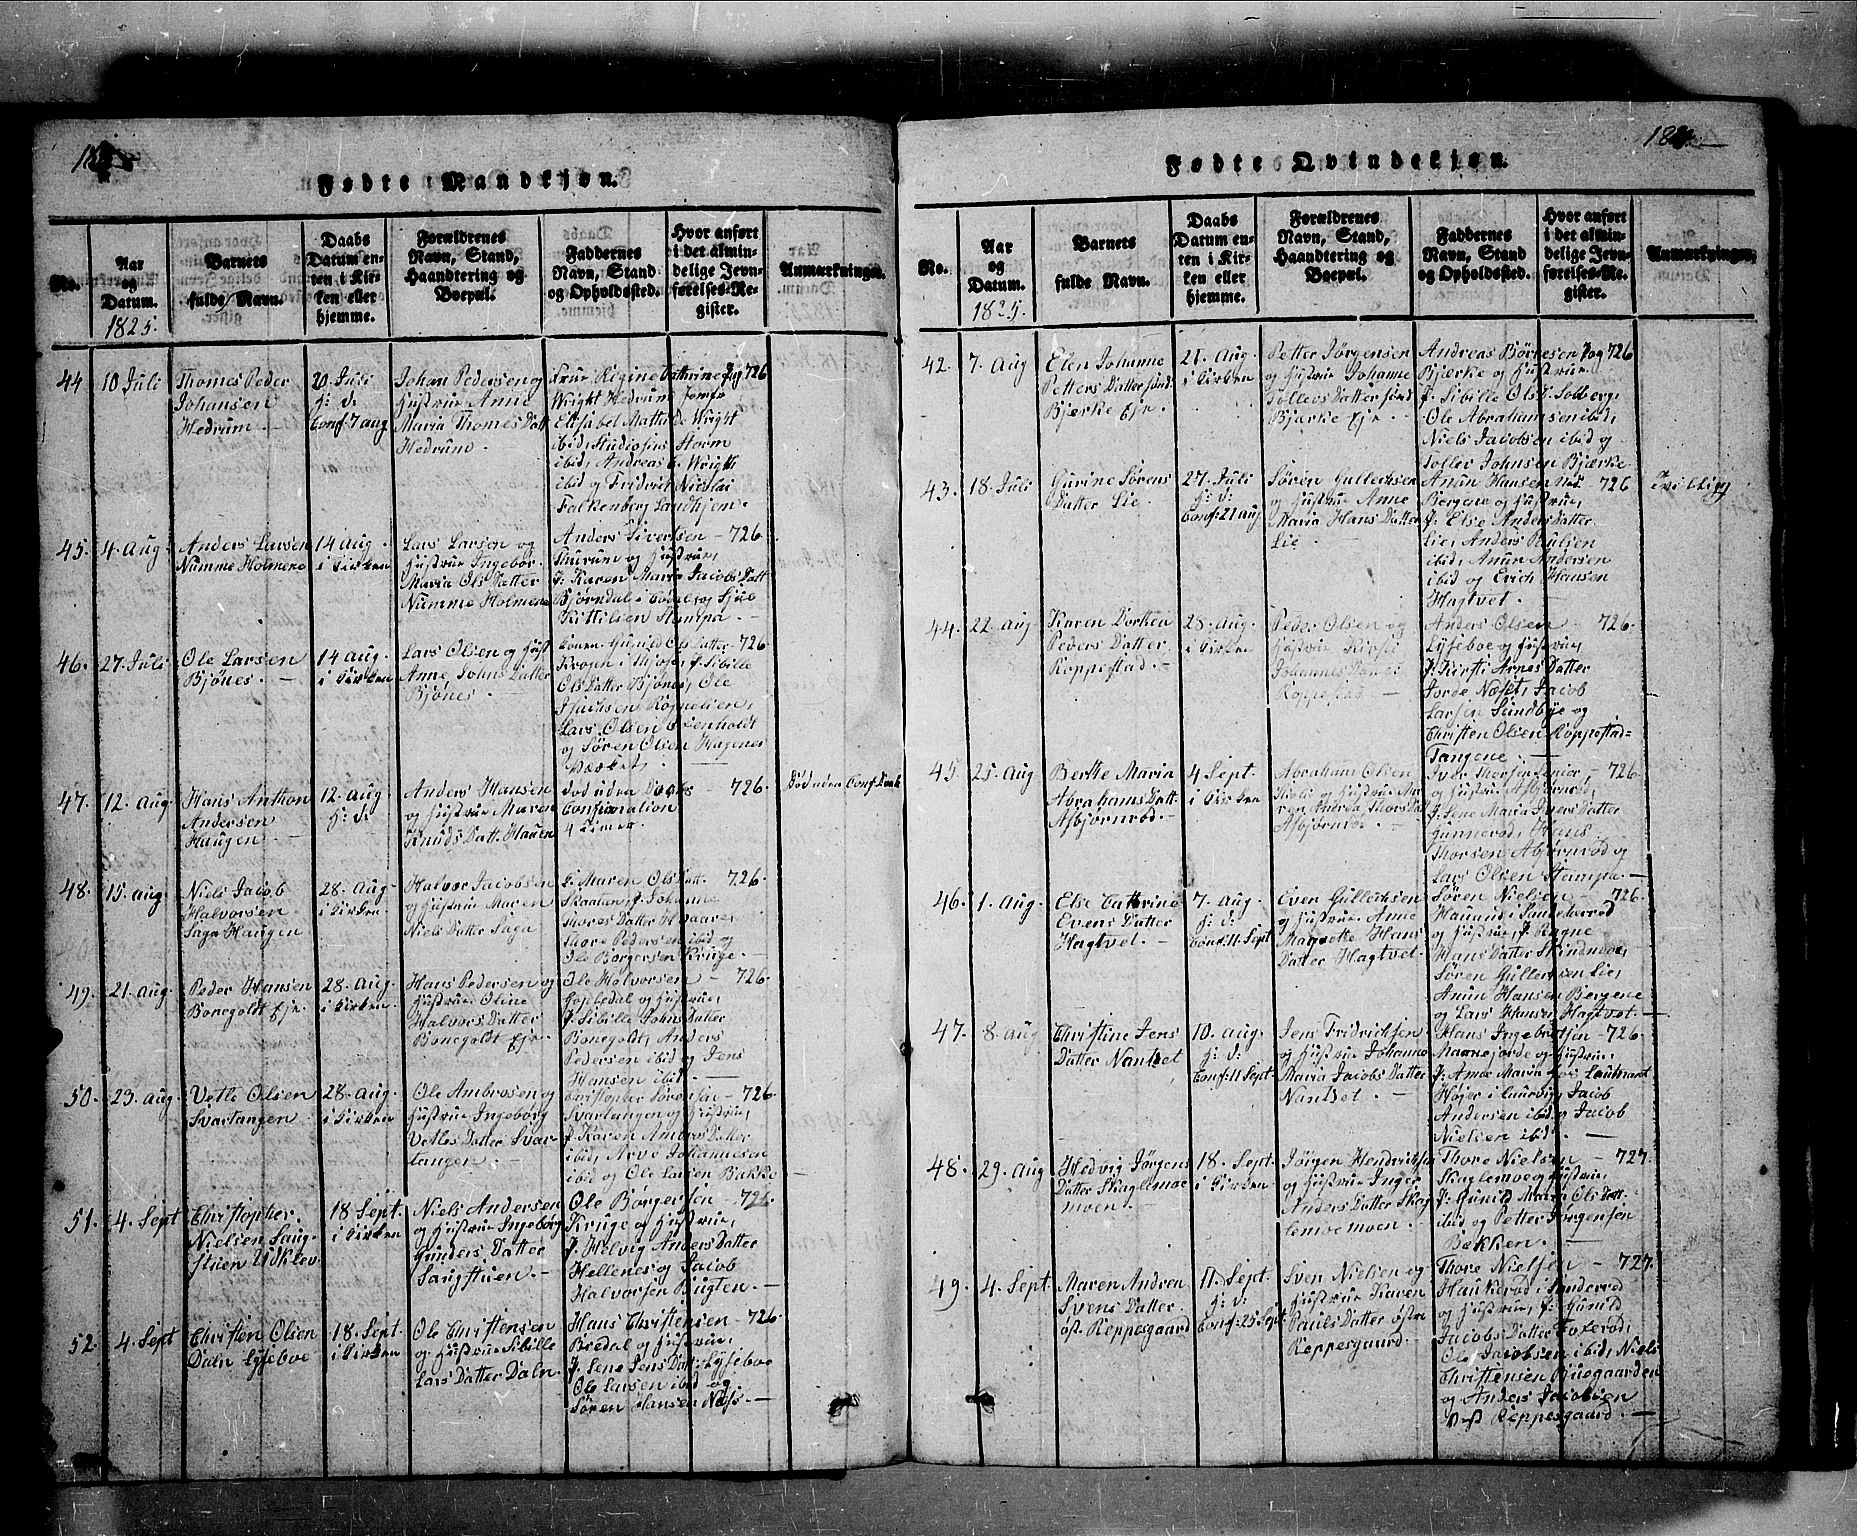 Fødte Mandkjøn.
No.
Aar
og
Datum.
1825.
Barnets
fulde Navn.
Daabs
Datum en-
ten i Kir-
ken eller
hjemme.
Forældrenes
Navn, Stand,
Haandtering og
Boepæl.
Faddernes
Navn, Stand
og Opholdssted.
Hvor anført
i det almin-
delige Jevn-
førelses-Re-
gister.
Anmærkninger.
44
10 Juli
Thomes Peder
Johansen
Hedrum. —
20 Juli
H: D:
Conf: 7 aug
Johan Pedersen og
Hustrue Anne
Maria Thomes Datt
Hedrum.
Frue Regine Cathrine
Wright Hedrum
Elisabet Mathilde Wright
ibid, Studiosus Storm
ibid, Andreas Wrigth
ibid og Fridrich Nicolai
Falkenberg Sandhjem.
726
45.
4 Aug
Anders Larsen
Numme Holmene
14 Aug
i Kirken
Lars Larsen og
Hustrue Ingebor
Maria Ols Datter
Numme Holmene
Anders Sivertsen — 726
og Hustrue,
J: Karen Maria Jacobs Datt
Bjørndal i
Kittilsen Stumpa —
46.
27. Juli
Ole Larsen
Bjønes. —
14 aug
i Kirken
Lars Olsen og Hust
Anne Johns Datter
Bjønes —
Gunild Ols Datter — 726
Ols Datter Bjønes, Ole
Lars Olsen
og Søren Olsen Hagenes
47.
12. Aug
Hans Anthon
Andersen
Haugen —
12. Aug
H: D:
Anders Hansen
og Hustrue Maren
Knuds Datt. Hauen
død uden Daabs — 726.
Confirmation
4 Timer
Død uden Conf: Daab
48.
15. aug
Niels Jacob
Halvorsen
Saga Haugen
28. Aug
i Kirken
Halvor Jacobsen
og Hustrue Maren
Niels Datter Saga
J: Maren Ols Datt. 726.
Skaatun, J: Johanne
Thores Datter Hvaare,
Thore Pedersen ibid og
Ole Borgersen Kruge. —
49.
21. Aug
Peder Hansen
Bonegoldt Ejr.
28. Aug
i Kirken
Hans Pedersen og
Hustrue Oline
Halvors Datter
Bonegoldt Ejr.
Ole Halvorsen — 726.
og Hustrue,
J: Sibille Johns Datter
Bonegoldt, Anders
Pedersen ibid og Jens
Hansen ibid. —
50.
23. aug
Vetle Olsen
Svartangen.
28. aug
i Kirken
Ole Ambrosen og
Hustrue Ingeborg
Vetles Datter Svar-
tangen. —
Christopher Sørensen — 726.
Svartangen og Hustrue,
J: Karen Ambros Datter
ibid, Arve Johannesen
ibid og Ole Larsen Bakke —
51.
4. Sept
Christopher
Nielsen Saug-
stuen Vaklev
18 Sept.
i Kirken
Niels Andersen
og Hustrue Ingeborg
Gunders Datter
Saugstuen. —
Ole Borgersen — 726
Kruge og Hustrue,
J: Helvig Anders Datter
Hellenes og Jacob
Halvorsen Bugten. —
52.
4. Sept
Christen Olsen
Daln Lyseboe
18 Sept.
i Kirken
Ole Christensen
og Hustrue Sibille
Lars Datter Daln.
Hans Christensen — 726.
Bredal og Hustrue,
J: Lene Jens Datt. Lyseboe
Ole Larsen ibid og
Søren Hansen Næss. —
Fødte Qvindekjøn.
No.
Aar
og
Datum.
1825.
Barnets
fulde Navn.
Daabs
Datum en-
ten i Kir-
ken eller
hjemme.
Forældrenes
Navn, Stand,
Haandtering og
Boepæl.
Faddernes
Navn, Stand
og Opholdssted.
Hvor anført
i det almin-
delige Jevn-
førelses-Re-
gister.
Anmærkninger.
42.
7. Aug
Elen Johanne
Petters Datter
Bjærke Ejr.
21. Aug
i Kirken
Petter Jørgensen
og Hustrue Johanne
Tollevs Datter
Bjærke Ejr
Andreas Børresen 726
Bjærke og Hustrue
J: Sibille Ols Solberg,
Ole Abrahamsen ibid,
Niels Jacobsen ibid og
Tollev Johnsen Bjærke
43.
18. Juli
Gurine Sørens
Datter Lie.
27. Juli
H: D:
Conf: 21 aug
Søren Gullechsen
og Hustrue Anne
Maria Hans Datter
Lie —
Amun Hansen 726
Bergene og Hustrue,
J: Else Anders Datter
Lie, Anders Paulsen
ibid, Amun Andersen
ibid og Erich Hansen
Hagtvet. —
Tvilling
44.
22. Aug
Karen Dorthea
Peders Datter
Roppestad. —
28. Aug.
i Kirken
Peder Olsen og
Hustrue Kirsti
Johannes Datter
Roppestad —
Anders Olsen — 726.
Lyseboe og Hustrue,
J: Kirsti Arnes Datter
Jorde Næset, Jacob
Larsen Sundbye og
Christen Olsen Roppestad-
Tangene. —
45.
25. Aug
Berthe Maria
Abrahams Datt.
Asbjørnrød. —
4 Sept.
i Kirken
Abraham Olsen
og Hustrue Ma-
ren Andrea Thors Datt
Asbjørnrød. —
Iver Thorsen — 726
og Hustrue Asbjørnrød,
J: Lene Maria Ivers Datter
Gunnerød, Hans
Thorsen Asbjørnrød og
Lars Olsen Stumpa —
46.
1. Aug.
Else Cathrine
Evens Datter
Hagtvet. —
7. Aug.
H: D:
Conf: 11. Sept
Even Gullechsen
og Hustrue Anne
Margrette Hans
Datter Hagtvet.
Søren Nielsen — 726.
Hauen i Sandeherred
og Hustrue, J: Ragne
Hans Datter
Søren Gullechsen Lie,
Amun Hansen Bergene
og Lars Hansen Hagtvet. —
47.
8. aug
Christine Jens
Datter Nanset
10. aug.
H: D:
Conf: 11 Sept.
Jens Fridrichsen
og Hustrue Johanne
Maria Jacobs Datter
Nanset. —
Hans Ingebretsen 726.
og Hustrue,
J: Anne Maria hos Leutnant
Højer i Laurvig, Jacob
Andersen ibid og Jacob
Nielsen ibid. —
48.
29. Aug
Hedvig Jørgens
Datter Skaglemoe
moen.
18. Sept.
i Kirken
Jørgen Hendrichsen
og Hustrue Inger
Anders Datter Skag
lemoe moen —
Thore Nielsen — 727.
Skaglemoe og Hustrue,
J: Gunild Maria Ols Datt.
ibid og Petter Jørgensen
Bakken. —
49.
4. Sept
Maren Andrea
Svens Datter
øst. Reppesgaard
11. Sept
H: D:
Conf: 25 Sept.
Sven Nielsen og
Hustrue Karen
Pauls Datter østre
Reppesgaard.
Thore Nielsen — 727.
Haukerød i Sanderød
og Hustrue, J: Gunild
Jacobs Datter Foxerød,
Ole Jacobsen ibid, Niels
Christensen Buegaarden
og Anders Jacobsen
Vest Reppesgaard. —